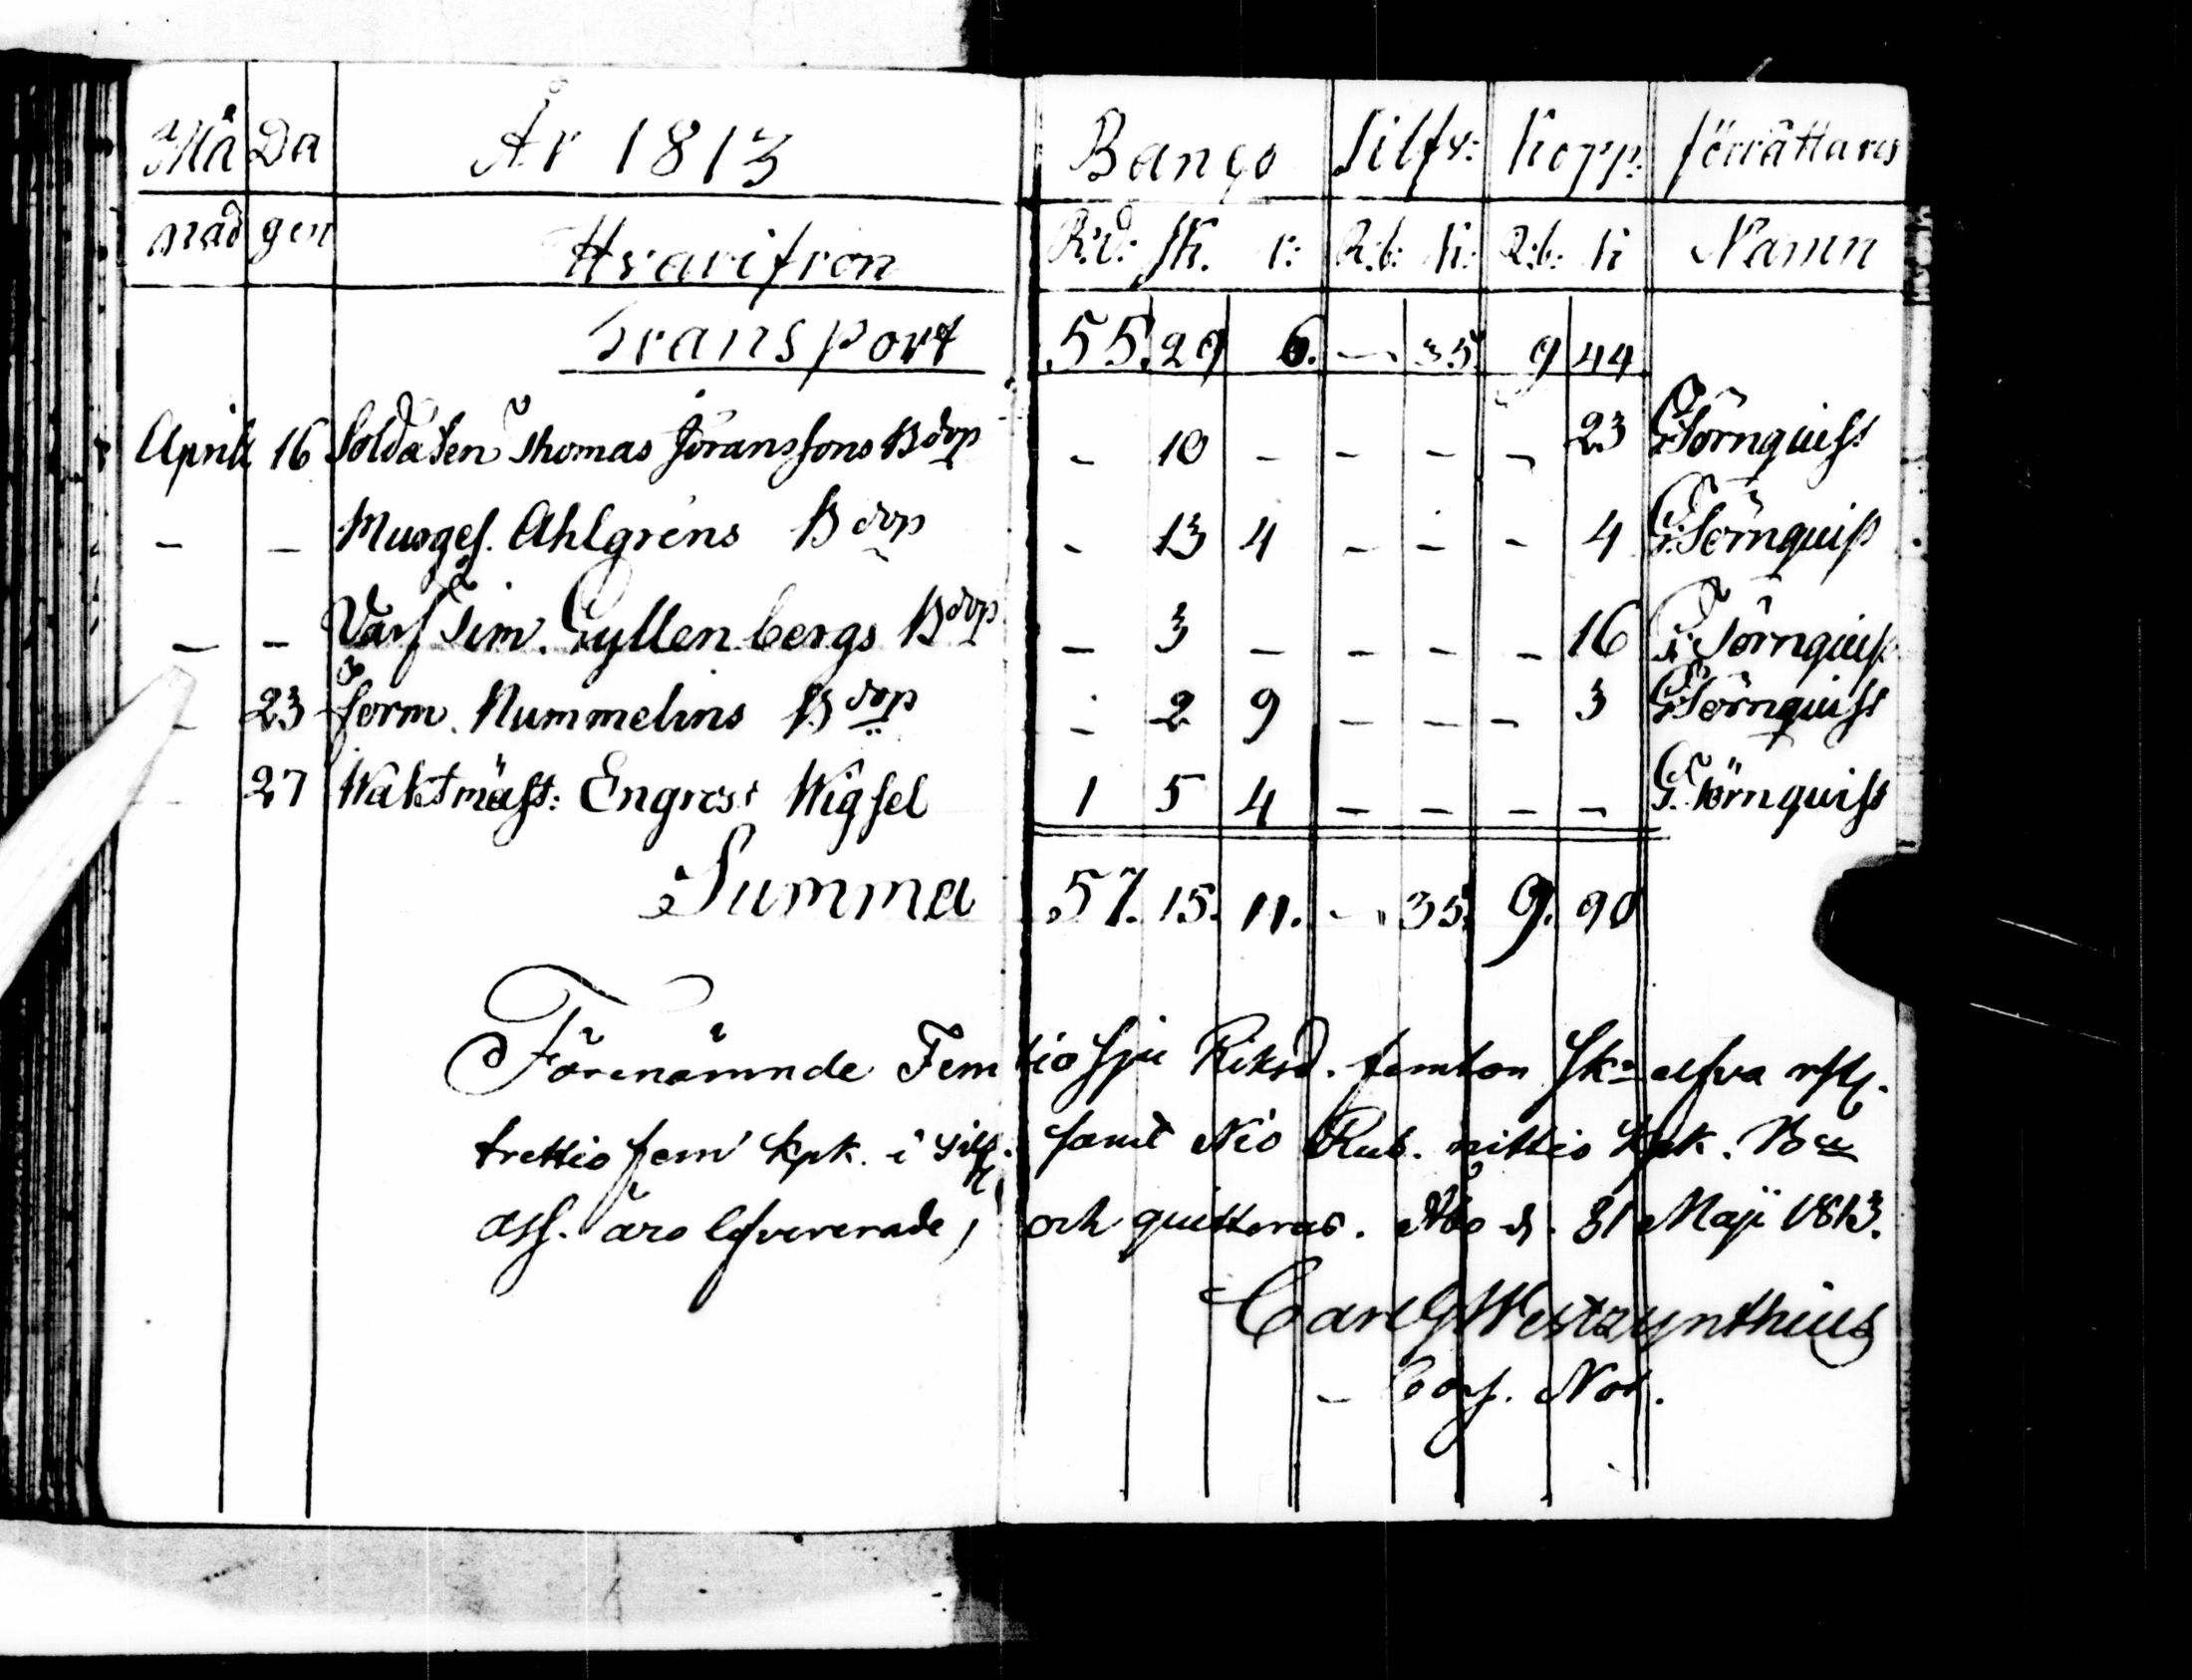 Må Da År 1813 Banco Silfv: Kopp: förrättares
nad gen Hvarifrån R:d: sk. r: R:b: k: R:b: k Namn
Transport 55. 29 6. — 35. 9 44
April 16 Soldaten Thomas Göranssons Bdop - 10 - - - - 23 G. Törnquist
- - Murges. Ahlgrens Bdop - 13 4 - - - 4 G. Törnquist
- - Varfs Tim. Gyllenbergs Bdop - 3 - - - - 16 G. Törnquist
- 23 form. Nummelins Bdop - 2 9 - - - 3 G. Törnquist
27 Waktmäst: Engros: Wigsel 1 5 4 - - - - G. Törnquist
Summa 57. 15. 11. — 35. 9. 90
Förenämnde Femtio sju Riksd. femton sk. elfva rst.
trettio fem kpk. i Silf. samt Nio Rub. nittio kpk. Bco
ass. äro lefvererade, och quitteras. Åbo d. 31 Maji 1813.
Carl G Westzynthius
Cons. Not.